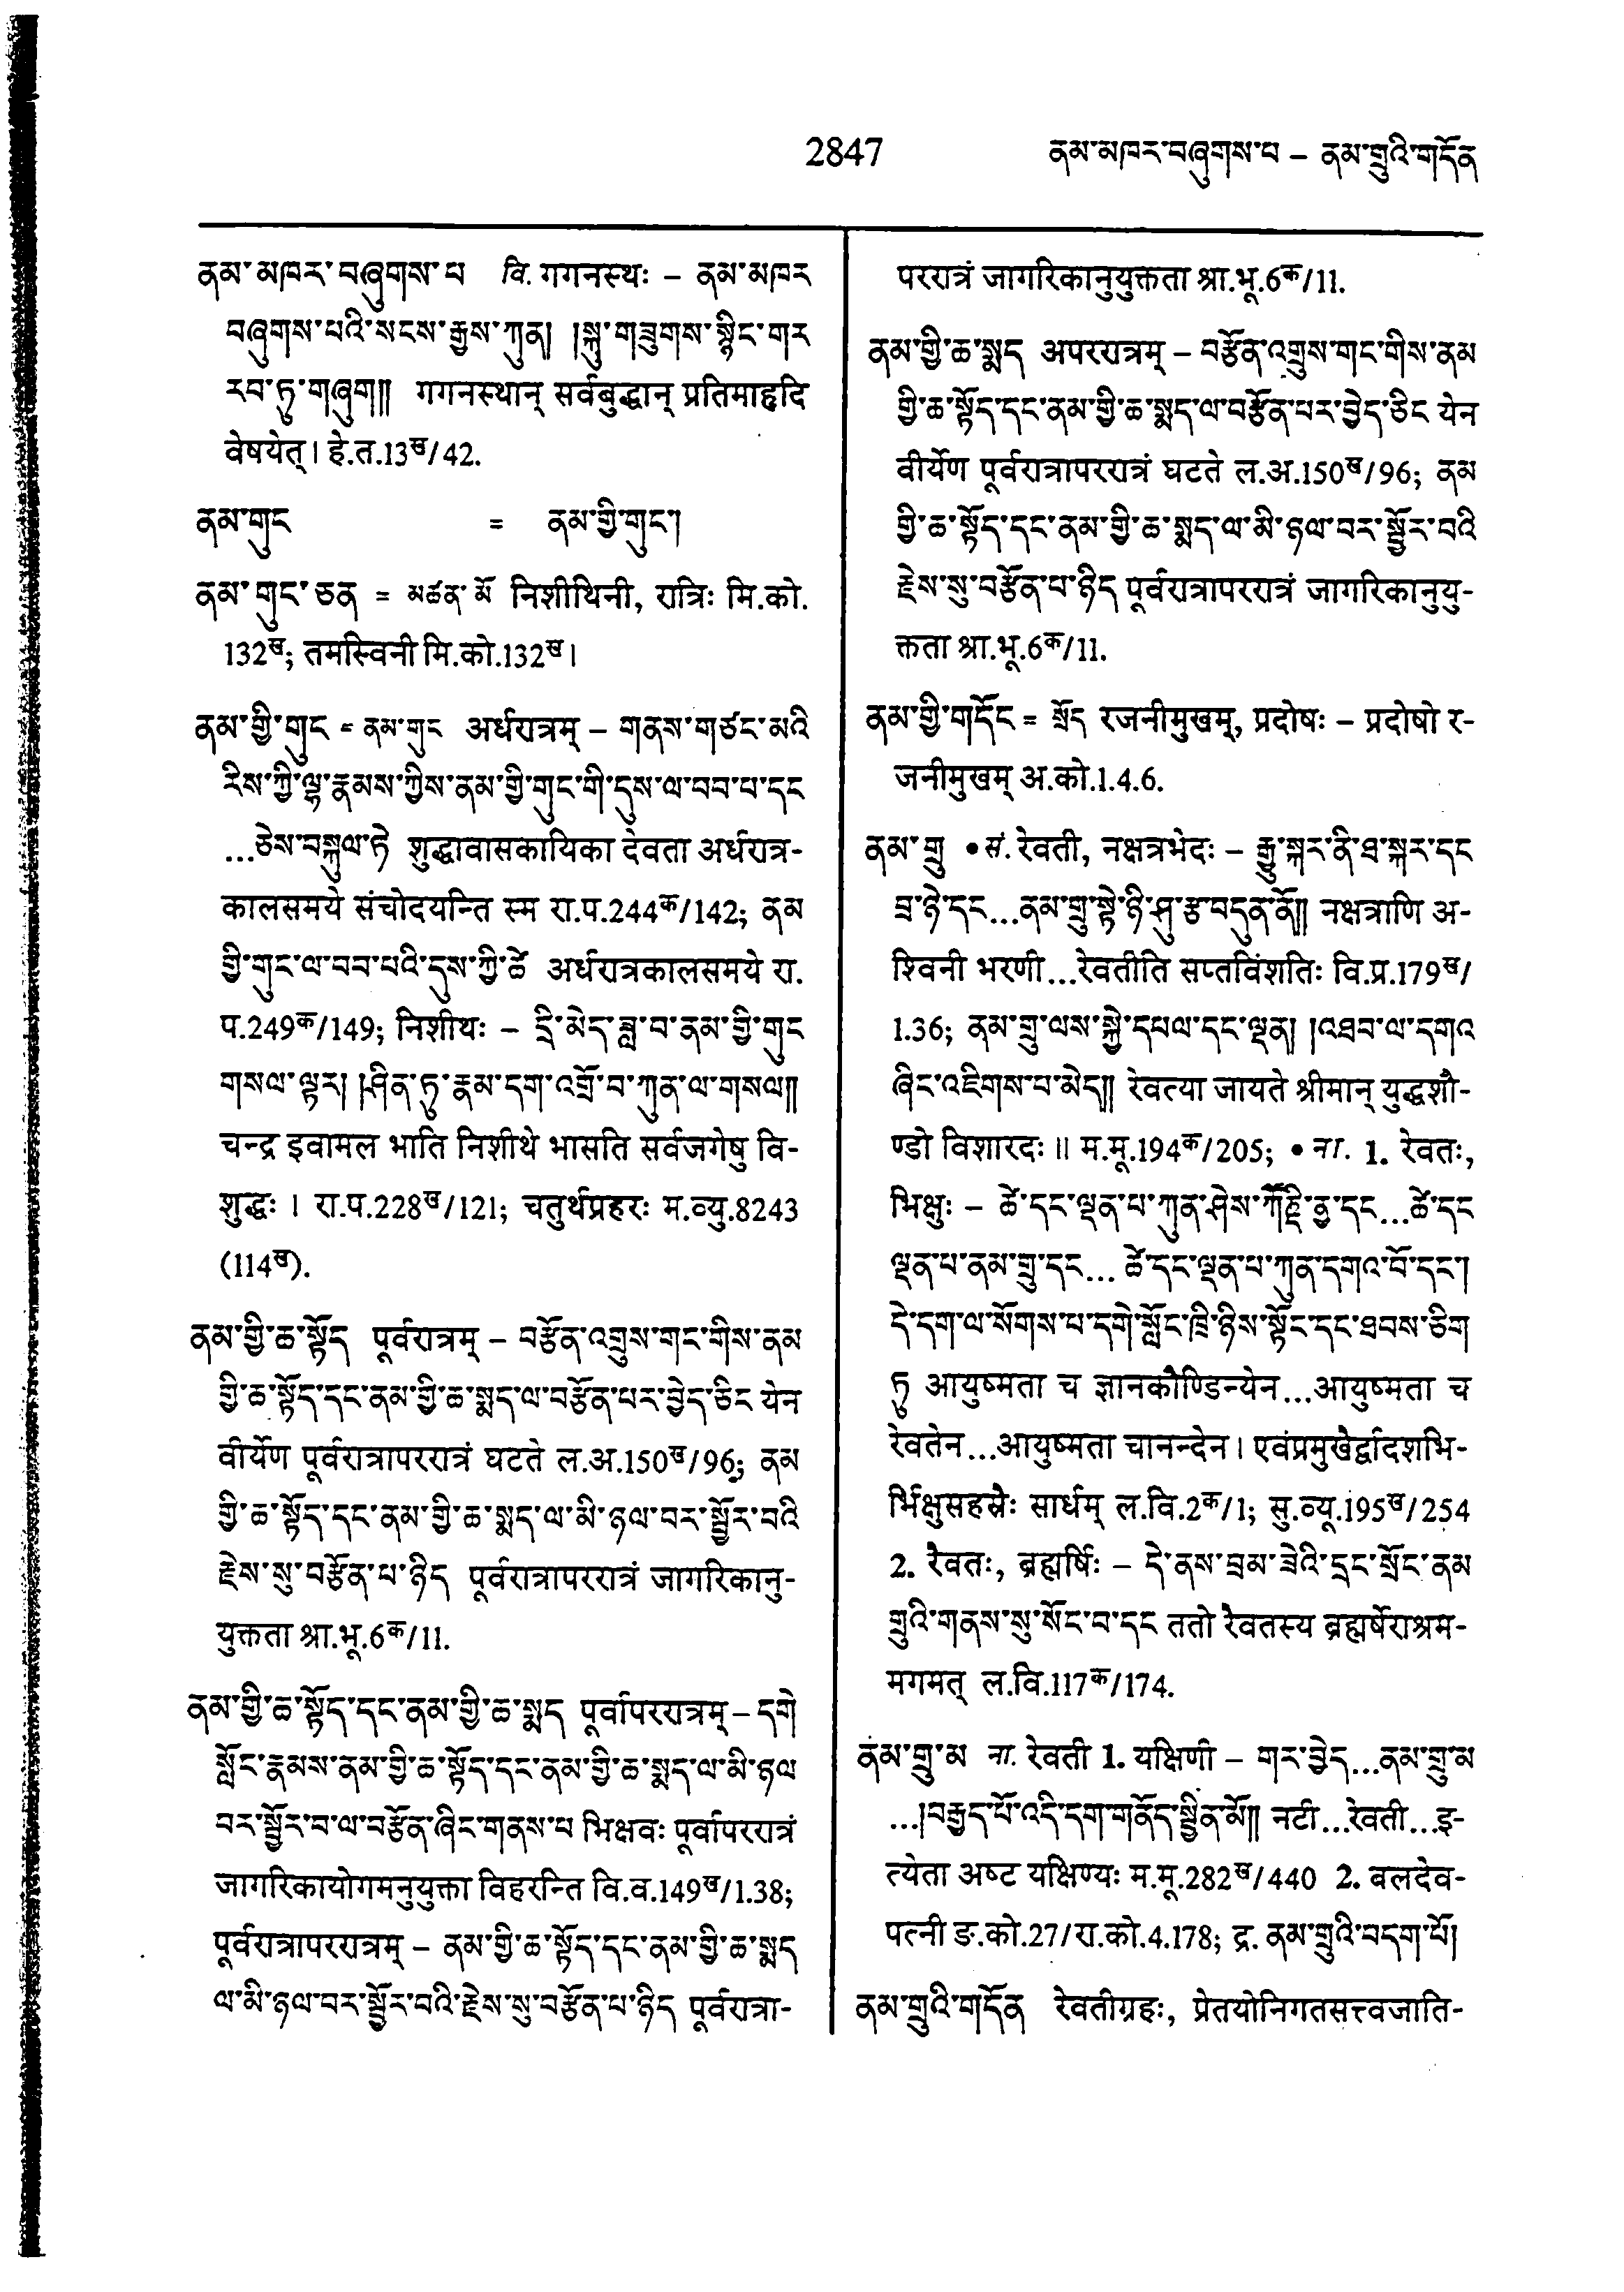 2847
ནམ་མཁར་བཞུགས་པ – ནམ་གྲུའི་གདོན
ནམ་མཁར་བཞུགས་པ वि. गगनस्थः – ནམ་མཁར
བཞུགས་པའི་སངས་རྒྱས་ཀུན། །སྐུ་གཟུགས་སྙིང་གར
རབ་ཏུ་གཞུག།། गगनस्थान् सर्वबुद्धान् प्रतिमाहृदि
वेषयेत्। हे.त.13ख/42.
ནམ་གུང = ནམ་གྱི་གུང་།
ནམ་གུང་ཅན = མཚན་མོ निशीथिनी, रात्रिः मि.को.
132ख; तमस्विनी मि.को.132ख।
ནམ་གྱི་གུང = ནམ་གུང अर्धरात्रम् – གནས་གཙང་མའི
རིས་ཀྱི་ལྷ་རྣམས་ཀྱིས་ནམ་གྱི་གུང་གི་དུས་ལ་བབ་པ་དང
...ཅེས་བསྐུལ་ཏེ शुद्धावासकायिका देवता अर्धरात्र-
कालसमये संचोदयन्ति स्म रा.प.244क/142; ནམ
གྱི་གུང་ལ་བབ་པའི་དུས་ཀྱི་ཚེ अर्धरात्रकालसमये रा.
प.249क/149; निशीथः – དྲི་མེད་ཟླ་བ་ནམ་གྱི་གུང
གསལ་ལྟར། །ཤིན་ཏུ་རྣམ་དག་འགྲོ་བ་ཀུན་ལ་གསལ།།
चन्द्र इवामल भाति निशीथे भासति सर्वजगेषु वि-
शुद्धः । रा.प.228ख/121; चतुर्थप्रहरः म.व्यु.8243
(114ख).
ནམ་གྱི་ཆ་སྟོད पूर्वरात्रम् – བརྩོན་འགྲུས་གང་གིས་ནམ
གྱི་ཆ་སྟོད་དང་ནམ་གྱི་ཆ་སྨད་ལ་བརྩོན་པར་བྱེད་ཅིང येन
वीर्येण पूर्वरात्रापररात्रं घटते ल.अ.150ख/96; ནམ
གྱི་ཆ་སྟོད་དང་ནམ་གྱི་ཆ་སྨད་ལ་མི་ཉལ་བར་སྦྱོར་བའི
རྗེས་སུ་བརྩོན་པ་ཉིད पूर्वरात्रापररात्रं जागरिकानु-
युक्तता श्रा.भू.6क/11.
ནམ་གྱི་ཆ་སྟོད་དང་ནམ་གྱི་ཆ་སྨད पूर्वापररात्रम् – དགེ
སློང་རྣམས་ནམ་གྱི་ཆ་སྟོད་དང་ནམ་གྱི་ཆ་སྨད་ལ་མི་ཉལ
བར་སྦྱོར་བ་ལ་བརྩོན་ཞིང་གནས་པ भिक्षवः पूर्वापररात्रं
जागरिकायोगमनुयुक्ता विहरन्ति वि.व.149ख/1.38;
पूर्वरात्रापररात्रम् – ནམ་གྱི་ཆ་སྟོད་དང་ནམ་གྱི་ཆ་སྨད
ལ་མི་ཉལ་བར་སྦྱོར་བའི་རྗེས་སུ་བརྩོན་པ་ཉིད पूर्वरात्रा-
पररात्रं जागरिकानुयुक्तता श्रा.भू.6क/11.
ནམ་གྱི་ཆ་སྨད अपररात्रम् – བརྩོན་འགྲུས་གང་གིས་ནམ
གྱི་ཆ་སྟོད་དང་ནམ་གྱི་ཆ་སྨད་ལ་བརྩོན་པར་བྱེད་ཅིང येन
वीर्येण पूर्वरात्रापररात्रं घटते ल.अ.150ख/96; ནམ
གྱི་ཆ་སྟོད་དང་ནམ་གྱི་ཆ་སྨད་ལ་མི་ཉལ་བར་སྦྱོར་བའི
རྗེས་སུ་བརྩོན་པ་ཉིད पूर्वरात्रापररात्रं जागरिकानुयु-
क्तता श्रा.भू.6क/11.
ནམ་གྱི་གདོང = སྲོད रजनीमुखम्, प्रदोषः – प्रदोषो र-
जनीमुखम् अ.को.1.4.6.
ནམ་གྲུ • सं. रेवती, नक्षत्रभेदः – རྒྱུ་སྐར་ནི་ཐ་སྐར་དང
བྲ་ཉེ་དང...ནམ་གྲུ་སྟེ་ཉི་ཤུ་རྩ་བདུན་ནོ།། नक्षत्राणि अ-
श्विनी भरणी...रेवतीति सप्तविंशतिः वि.प्र.179ख/
1.36; ནམ་གྲུ་ལས་སྐྱེ་དཔལ་དང་ལྡན། །འཐབ་ལ་དགའ
ཞིང་འཇིགས་པ་མེད།། रेवत्या जायते श्रीमान् युद्धशौ-
ण्डो विशारदः ॥ म.मू.194क/205; • ना. 1. रेवतः,
भिक्षुः – ཚེ་དང་ལྡན་པ་ཀུན་ཤེས་ཀཽཎྜི་ནྱ་དང...ཚེ་དང
ལྡན་པ་ནམ་གྲུ་དང... ཚེ་དང་ལྡན་པ་ཀུན་དགའ་བོ་དང་།
དེ་དག་ལ་སོགས་པ་དགེ་སློང་ཁྲི་ཉིས་སྟོང་དང་ཐབས་ཅིག
ཏུ आयुष्मता च ज्ञानकौण्डिन्येन...आयुष्मता च
रेवतेन...आयुष्मता चानन्देन। एवंप्रमुखैर्द्वादशभि-
र्भिक्षुसहस्रैः सार्धम् ल.वि.2क/1; सु.व्यू.195ख/254
2. रैवतः, ब्रह्मर्षिः – དེ་ནས་བྲམ་ཟེའི་དྲང་སྲོང་ནམ
གྲུའི་གནས་སུ་སོང་བ་དང ततो रैवतस्य ब्रह्मर्षेराश्रम-
मगमत् ल.वि.117क/174.
ནམ་གྲུ་མ ना. रेवती 1. यक्षिणी – གར་བྱེད...ནམ་གྲུ་མ
...།བརྒྱད་པོ་འདི་དག་གནོད་སྦྱིན་མོ།། नटी...रेवती...इ-
त्येता अष्ट यक्षिण्यः म.मू.282ख/440 2. बलदेव-
पत्नी ङ.को.27/रा.को.4.178; द्र. ནམ་གྲུའི་བདག་པོ།
ནམ་གྲུའི་གདོན रेवतीग्रहः, प्रेतयोनिगतसत्त्वजाति-